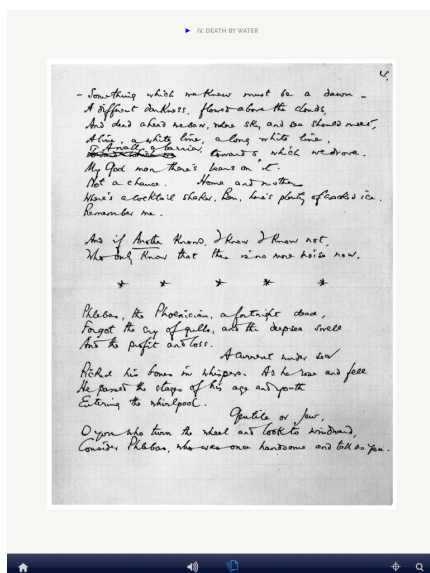 IV. DEATH BY WATER
4.
– Something which we knew must be a dawn –
A different darkness, flowed above the clouds,
And dead ahead we saw, where sky and sea should meet,
A line, a white line, a long white line,
A wall, a barrier, towards which we drove.
My God man there's bears on it.
Not a chance. Home and mother.
Where's a cocktail shaker, Ben, here's plenty of cracked ice.
Remember me.
And if Another knows, I know I know not,
Who only know that there is no more noise now.
* * * * *
Phlebas, the Phoenician, a fortnight dead,
Forgot the cry of gulls, and the deepsea swell
And the profit and loss.
A current under sea
Picked his bones in whispers. As he rose and fell
He passed the stages of his age and youth
Entering the whirlpool.
Gentile or Jew,
O you who turn the wheel and look to windward,
Consider Phlebas, who was once handsome and tall as you.